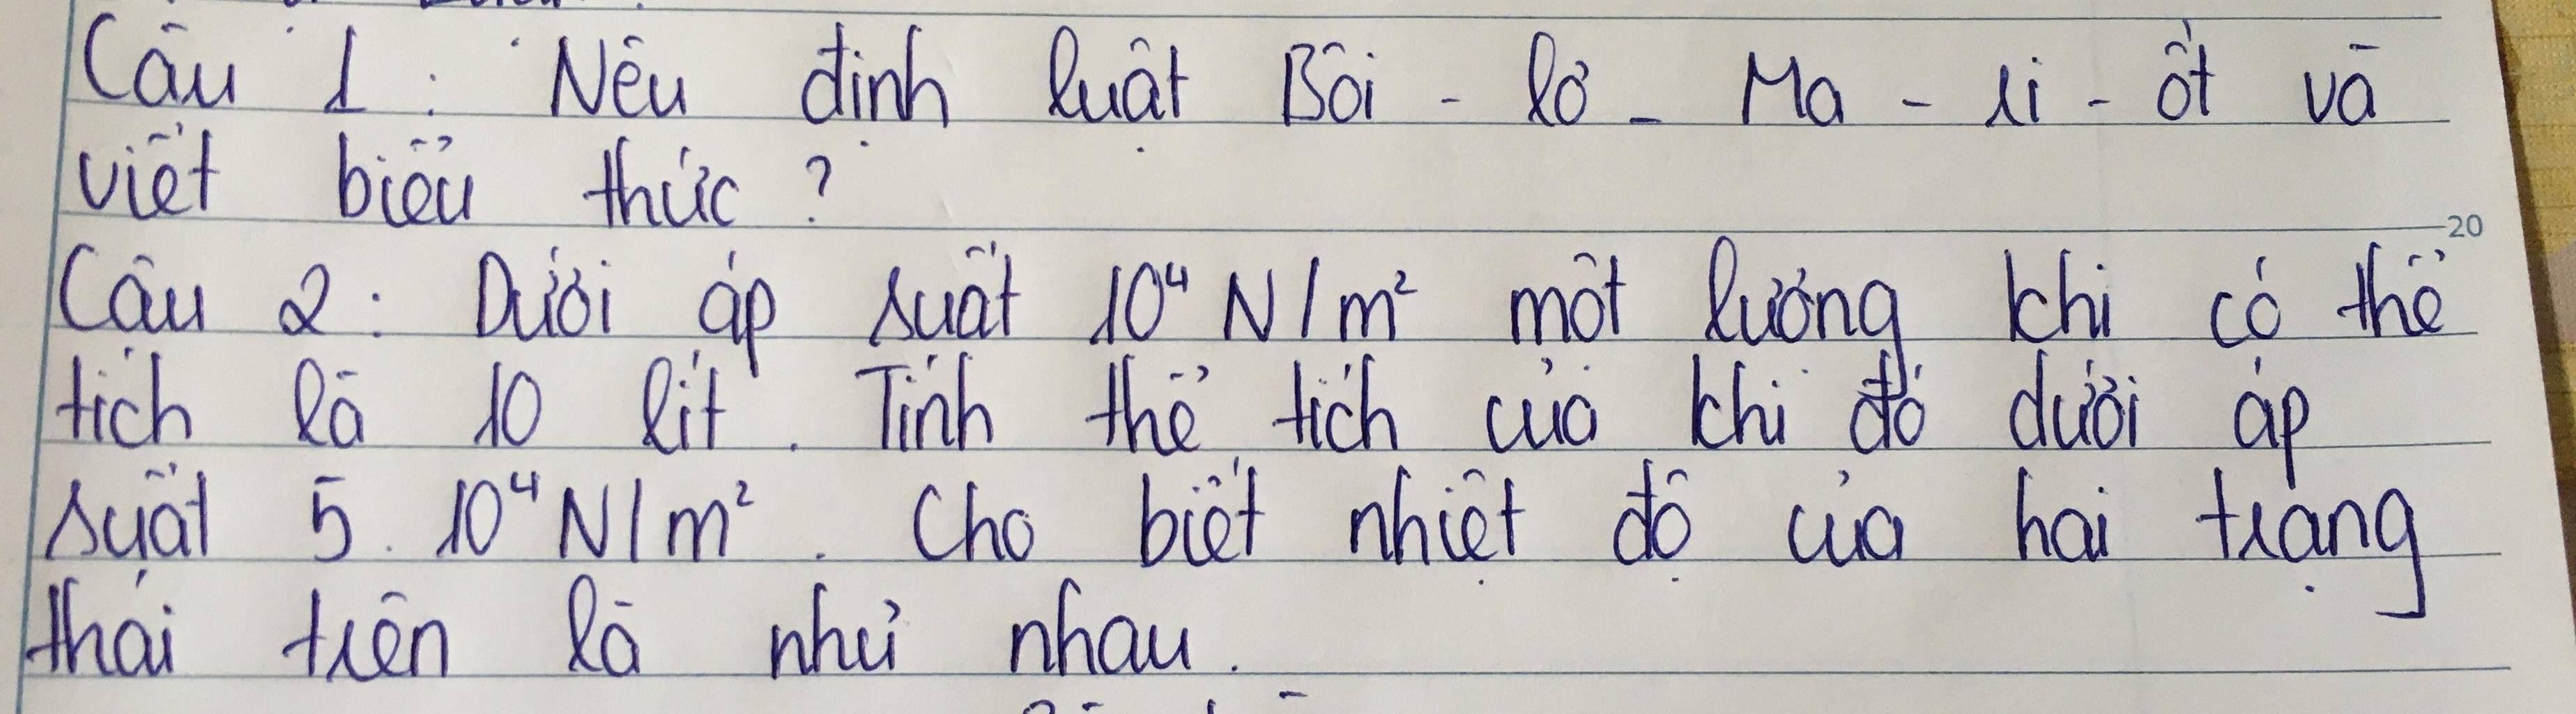 Câu 1 : Nêu định luật Bôi - lơ - Ma - ri - ốt và
viết biểu thức ?
20
Câu 2 : Dưới áp suất 10⁴ N/m² một lượng khí có thể
tích là 10 lít . Tính thể tích của khí đó dưới áp
suất 5 . 10⁴ N/m² . Cho biết nhiệt độ của hai trạng
thái trên là như nhau .